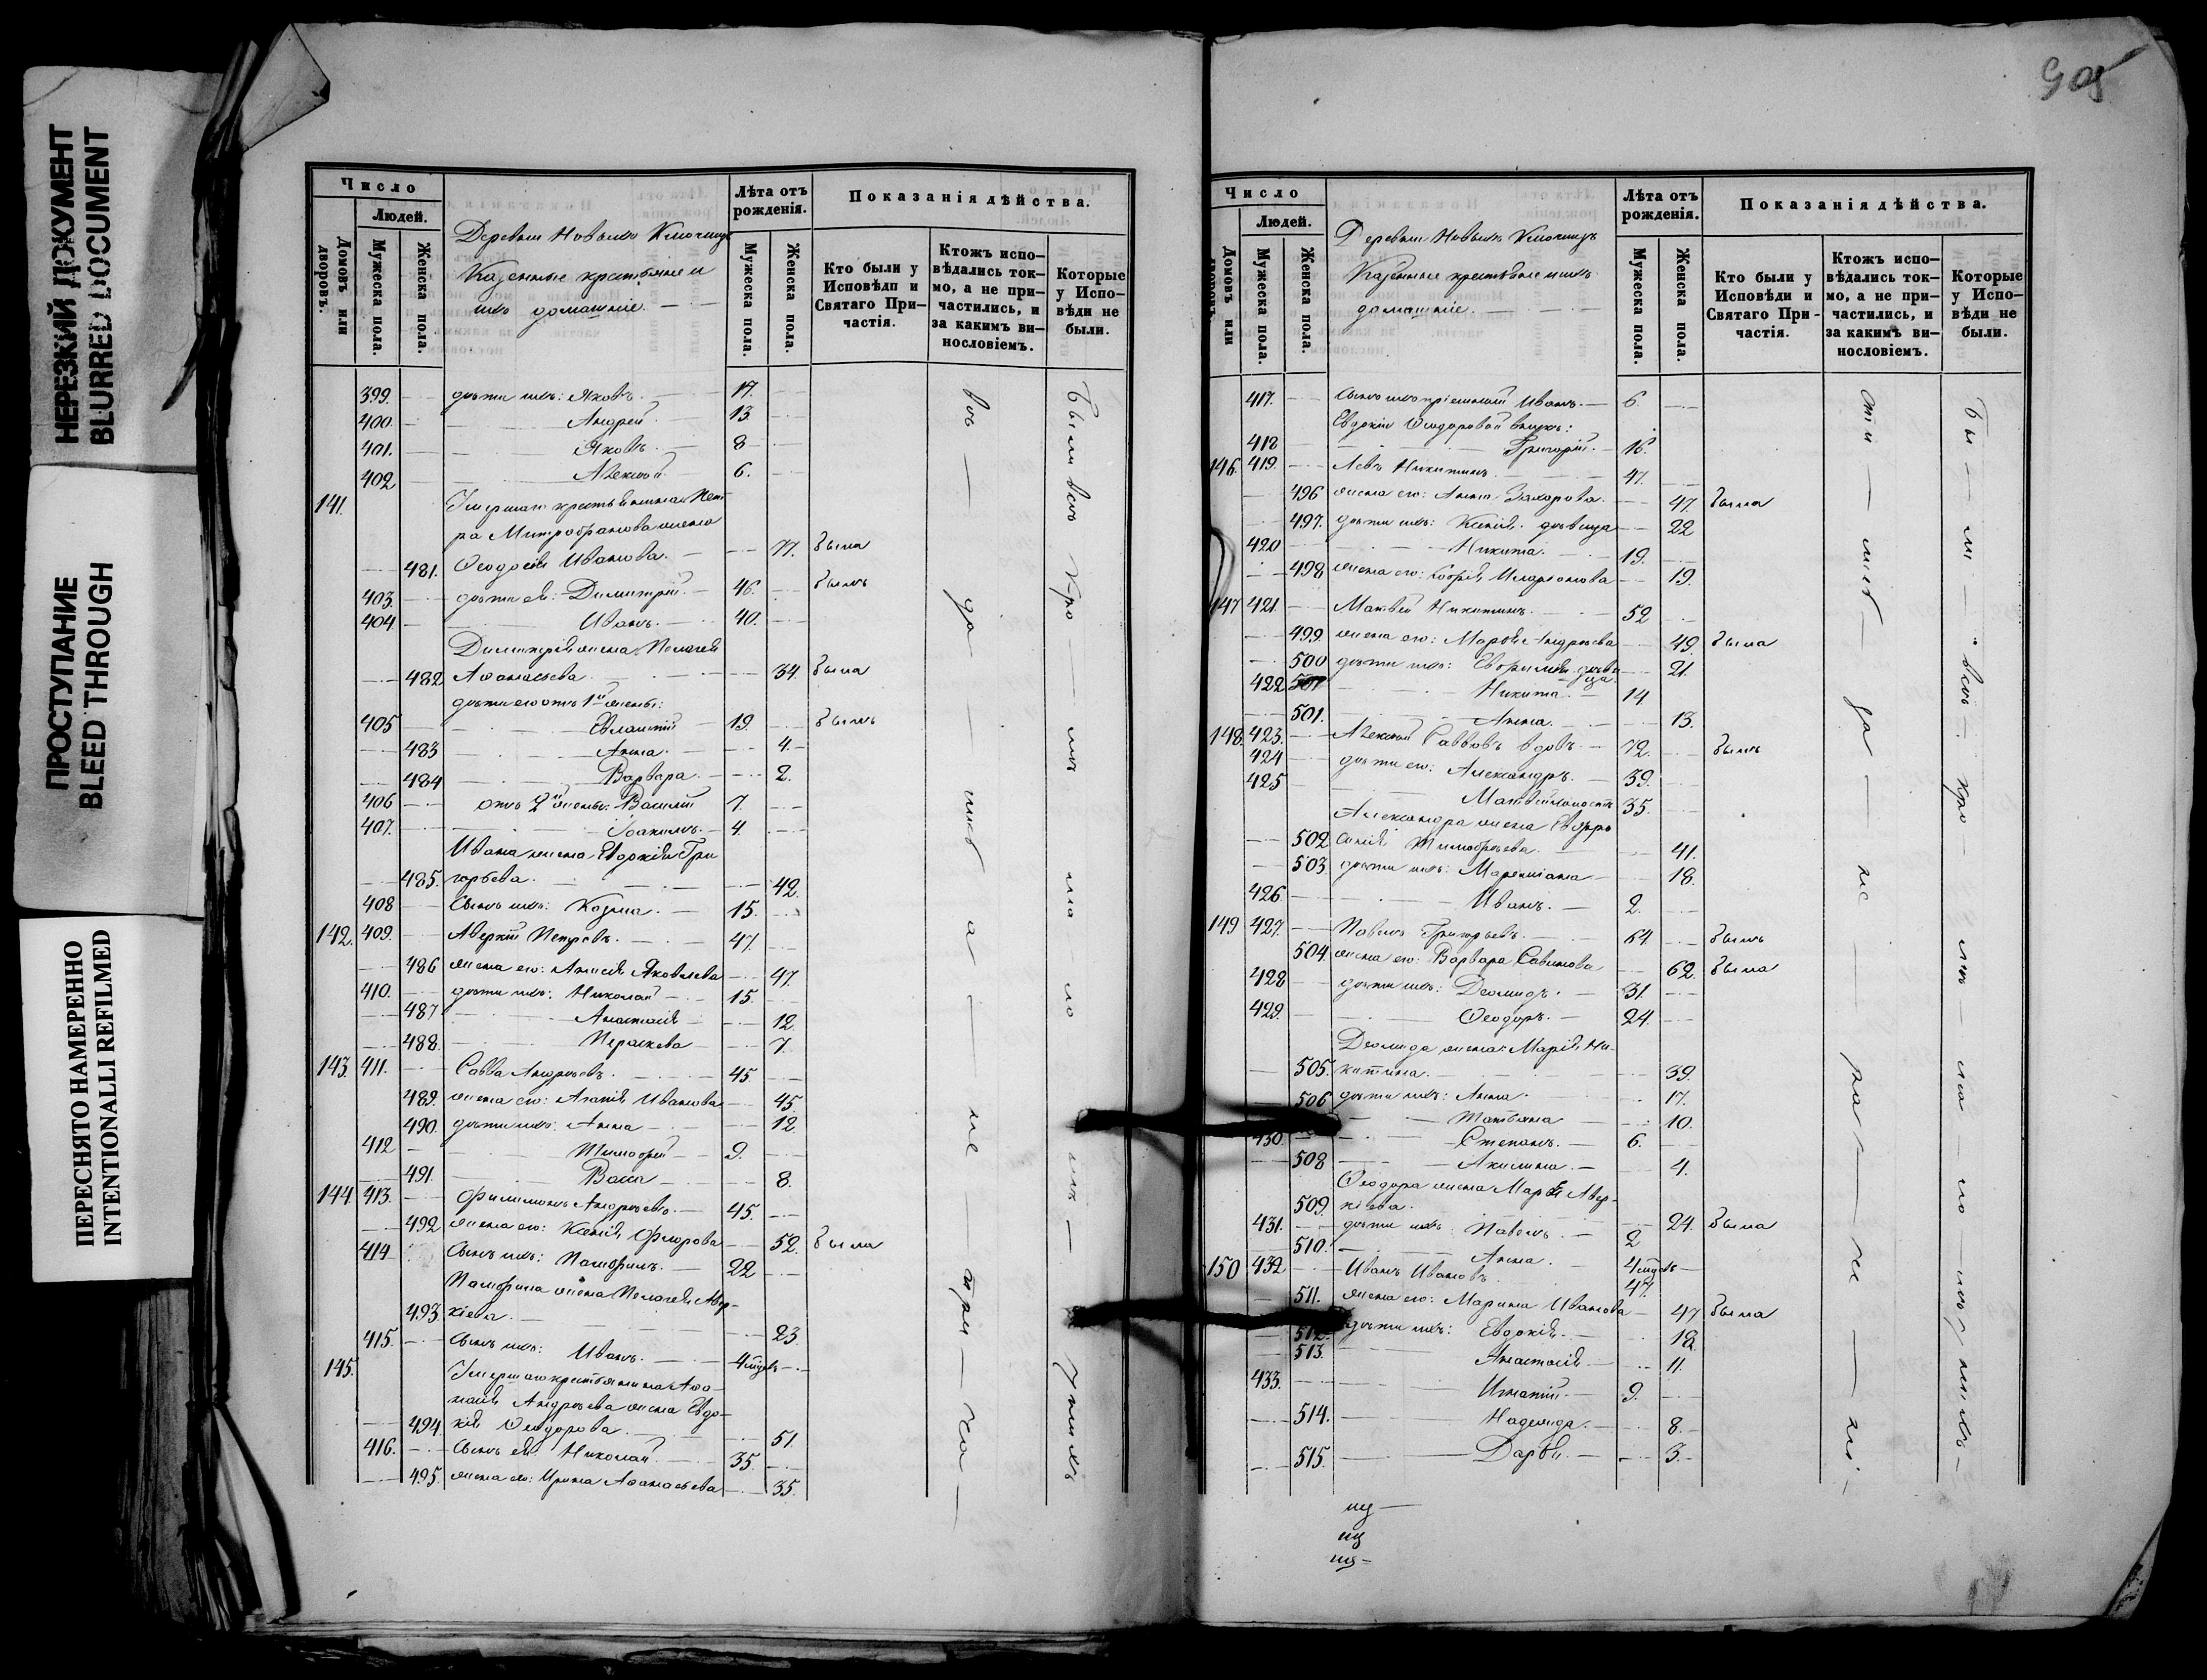 НЕРЕЗКИЙ ДОКУМЕНТ
BLURRED DOCUMENT
ПРОСТУПАНИЕ
BLEED THROUGH
ПЕРЕСНЯТО НАМЕРЕННО
INTENTIONALLI REFILMED
Число
Людей.
Домовъ или дворовъ.
Мужеска пола.
Женска пола.
Деревни Новыхъ Ключищъ
Казенные крестьяне и
ихъ домашніе.
Лѣта отъ рожденія.
Мужеска пола.
Женска пола.
Показанія дѣйства.
Кто были у Исповѣди и Святаго Причастія.
Ктожъ исповѣдались токмо, а не причастились, и за какимъ винословіемъ.
Которые у Исповѣди не были.
399. дѣти ихъ: Яковъ. 17.
400. Андрей 13
401. Яковъ. 8
402 Алексѣй 6.
141. Умершаго крестьянина Пет-
ра Митрофанова жена
481. Ѳеодосія Иванова. 77. была
403. дѣти ея: Димитрій. 46. былъ
404. Иванъ. 40.
Димитрія жена Пелагея
482 Аѳанасьева 34. была
дѣти его отъ 1й жены:
405 Евлампій 19. былъ
483 Анна. 4.
484 Варвара. 2.
406 отъ 2й жены: Василій 7.
407. Іоакимъ. 4.
Ивана жена Евдокія Гри
485. горьева. 42.
408 Сынъ ихъ: Козма. 15.
142. 409. Аверкій Петровъ. 47.
486 жена его: Анисія Яковлева 47.
410. дѣти ихъ: Николай 15.
487 Анастасія 12.
488. Параскева 7.
143. 411. Савва Андреевъ. 45.
489. жена его: Агапія Иванова 45.
490. дѣти ихъ: Анна 12.
412 Тимофей 9.
491. Васса 8.
144 413. Филимонъ Андреевъ. 45.
492 жена его: Ксенія Флорова 52. была
414 Сынъ ихъ: Памфилъ. 22
Памфила жена Пелагея Авер-
493. кіева. 23
415. Сынъ ихъ: Иванъ. 4 мѣсяц.
145. Умершаго крестьянина Аѳа-
насія Андреева жена Евдо-
494. кія Ѳеодорова. 51.
416. Сынъ ея: Николай 35.
495. жена его: Ирина Аѳанасьева 35.
905
Число
Людей.
Домовъ или дворовъ.
Мужеска пола.
Женска пола.
Деревни Новыхъ Ключищъ
Казенные крестьяне и ихъ
домашніе.
Лѣта отъ рожденія.
Мужеска пола.
Женска пола.
Показанія дѣйства.
Кто были у Исповѣди и Святаго Причастія.
Ктожъ исповѣдались токмо, а не причастились, и за какимъ винословіемъ.
Которые у Исповѣди не были.
417. Сынъ ихъ пріемный Иванъ. 6.
Евдокіи Ѳеодоровой внукъ:
418 Григорій. 16.
146. 419. Левъ Никитинъ. 47.
496 жена его: Анна Захарова. 47. была
497. дѣти ихъ: Ксенія дѣвица 22
420 Никита. 19.
498 жена его: Софія Иларіонова 19.
147 421. Матвей Никитинъ. 52
499. жена его: Марѳа Андреева 49. была
500 дѣти ихъ: дѣвица 21.
422 Никита 14.
501. Анна. 13.
148. 423. Алексѣй Саввовъ вдовъ. 72. былъ
424 дѣти его: Александръ. 39.
425 Матвей холостъ 35.
Александра жена Евфро
502 синія Тимофеева. 41.
503. дѣти ихъ: Мареміана 18.
426 Иванъ. 2.
149 427. Павелъ Григорьевъ. 64. былъ
504. жена его: Варвара Савинова 62. была
428 дѣти ихъ: Деомидъ. 31.
429. Ѳеодоръ. 24.
Деомида жена: Марія Ни-
505. китина. 39.
506 дѣти ихъ: Анна. 17.
Татьяна 10.
430 Степанъ. 6.
508 Акилина. 4.
Ѳеодора жена Марѳа Авер-
509. кіева. 24. была
431. дѣти ихъ: Павелъ. 2
510. Анна. 4 мѣсяц.
150 432 Иванъ Ивановъ. 47.
511. жена его: Марина Иванова 47 была
512. дѣти ихъ: Евдокія. 18.
513. Анастасія 11.
433. Игнатій. 9.
514. Надежда. 8.
515. Дарья. 3.